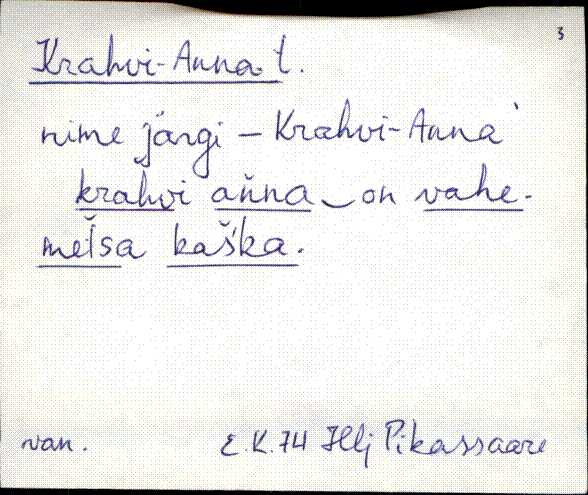 3
Krahvi-Anna t.
nime järgi – Krahvi-Anna
krahvi ańna on vahe-
metsa kaśka.
van. E.K.74 Hlj Pikassaare